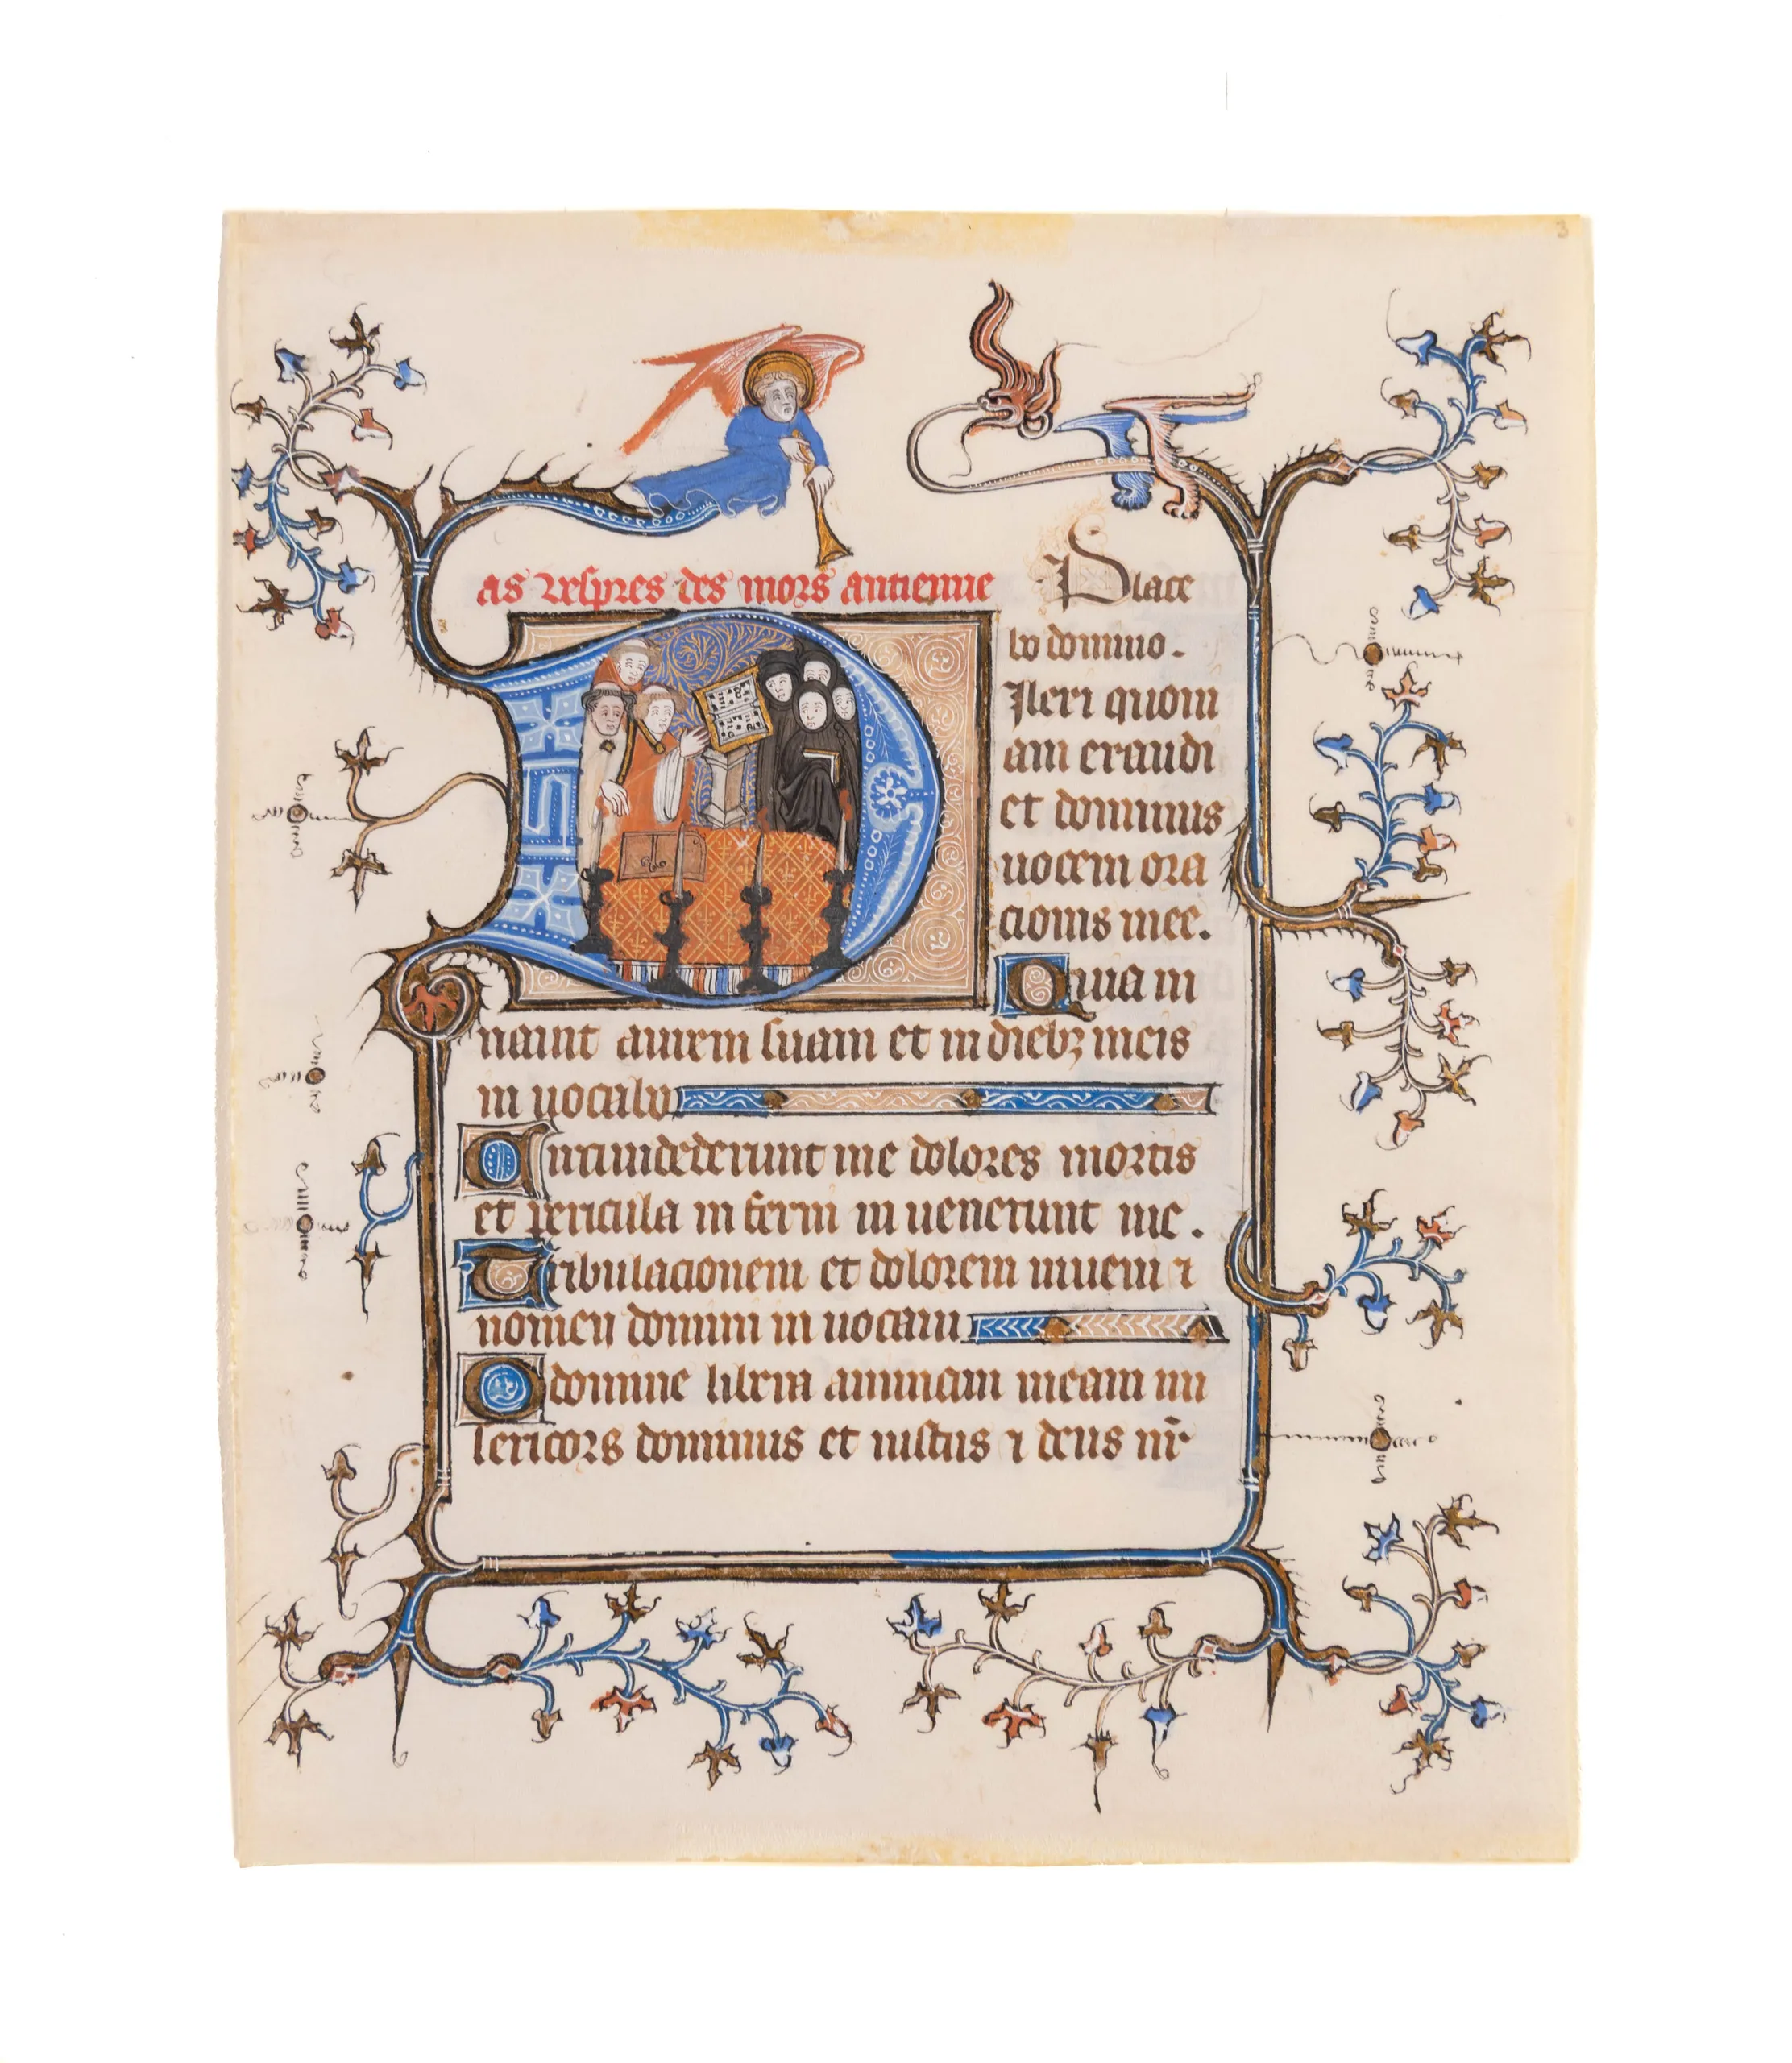 3
as vespres des mors antienne Place
bo domino.
Dileri quoni
am exaudi
et dominus
vocem ora
cionis mee.
Quia in
naint aurem suam et in diebꝫ meis
in vocabo
Circumdederunt me dolores mortis
et pericula in ferni in venerunt me.
Tribulacionem et dolorem inueni ⁊
nomen domini in vocaui
O domine libera animam meam mi
sericors dominus et iustus ⁊ deus nr̄